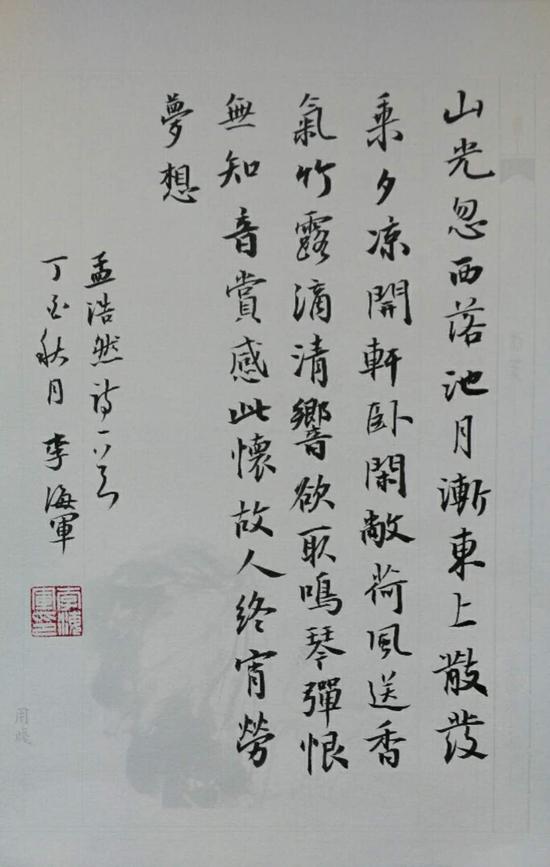 山光忽西落池月漸東上散發
乘夕凉開軒卧閑敞荷風送香
氣竹露滴清響欲取鳴琴彈恨
無知音賞感此懷故人終宵勞
夢想
孟浩然詩一首
丁酉秋月 李海軍
李海軍印
用箋